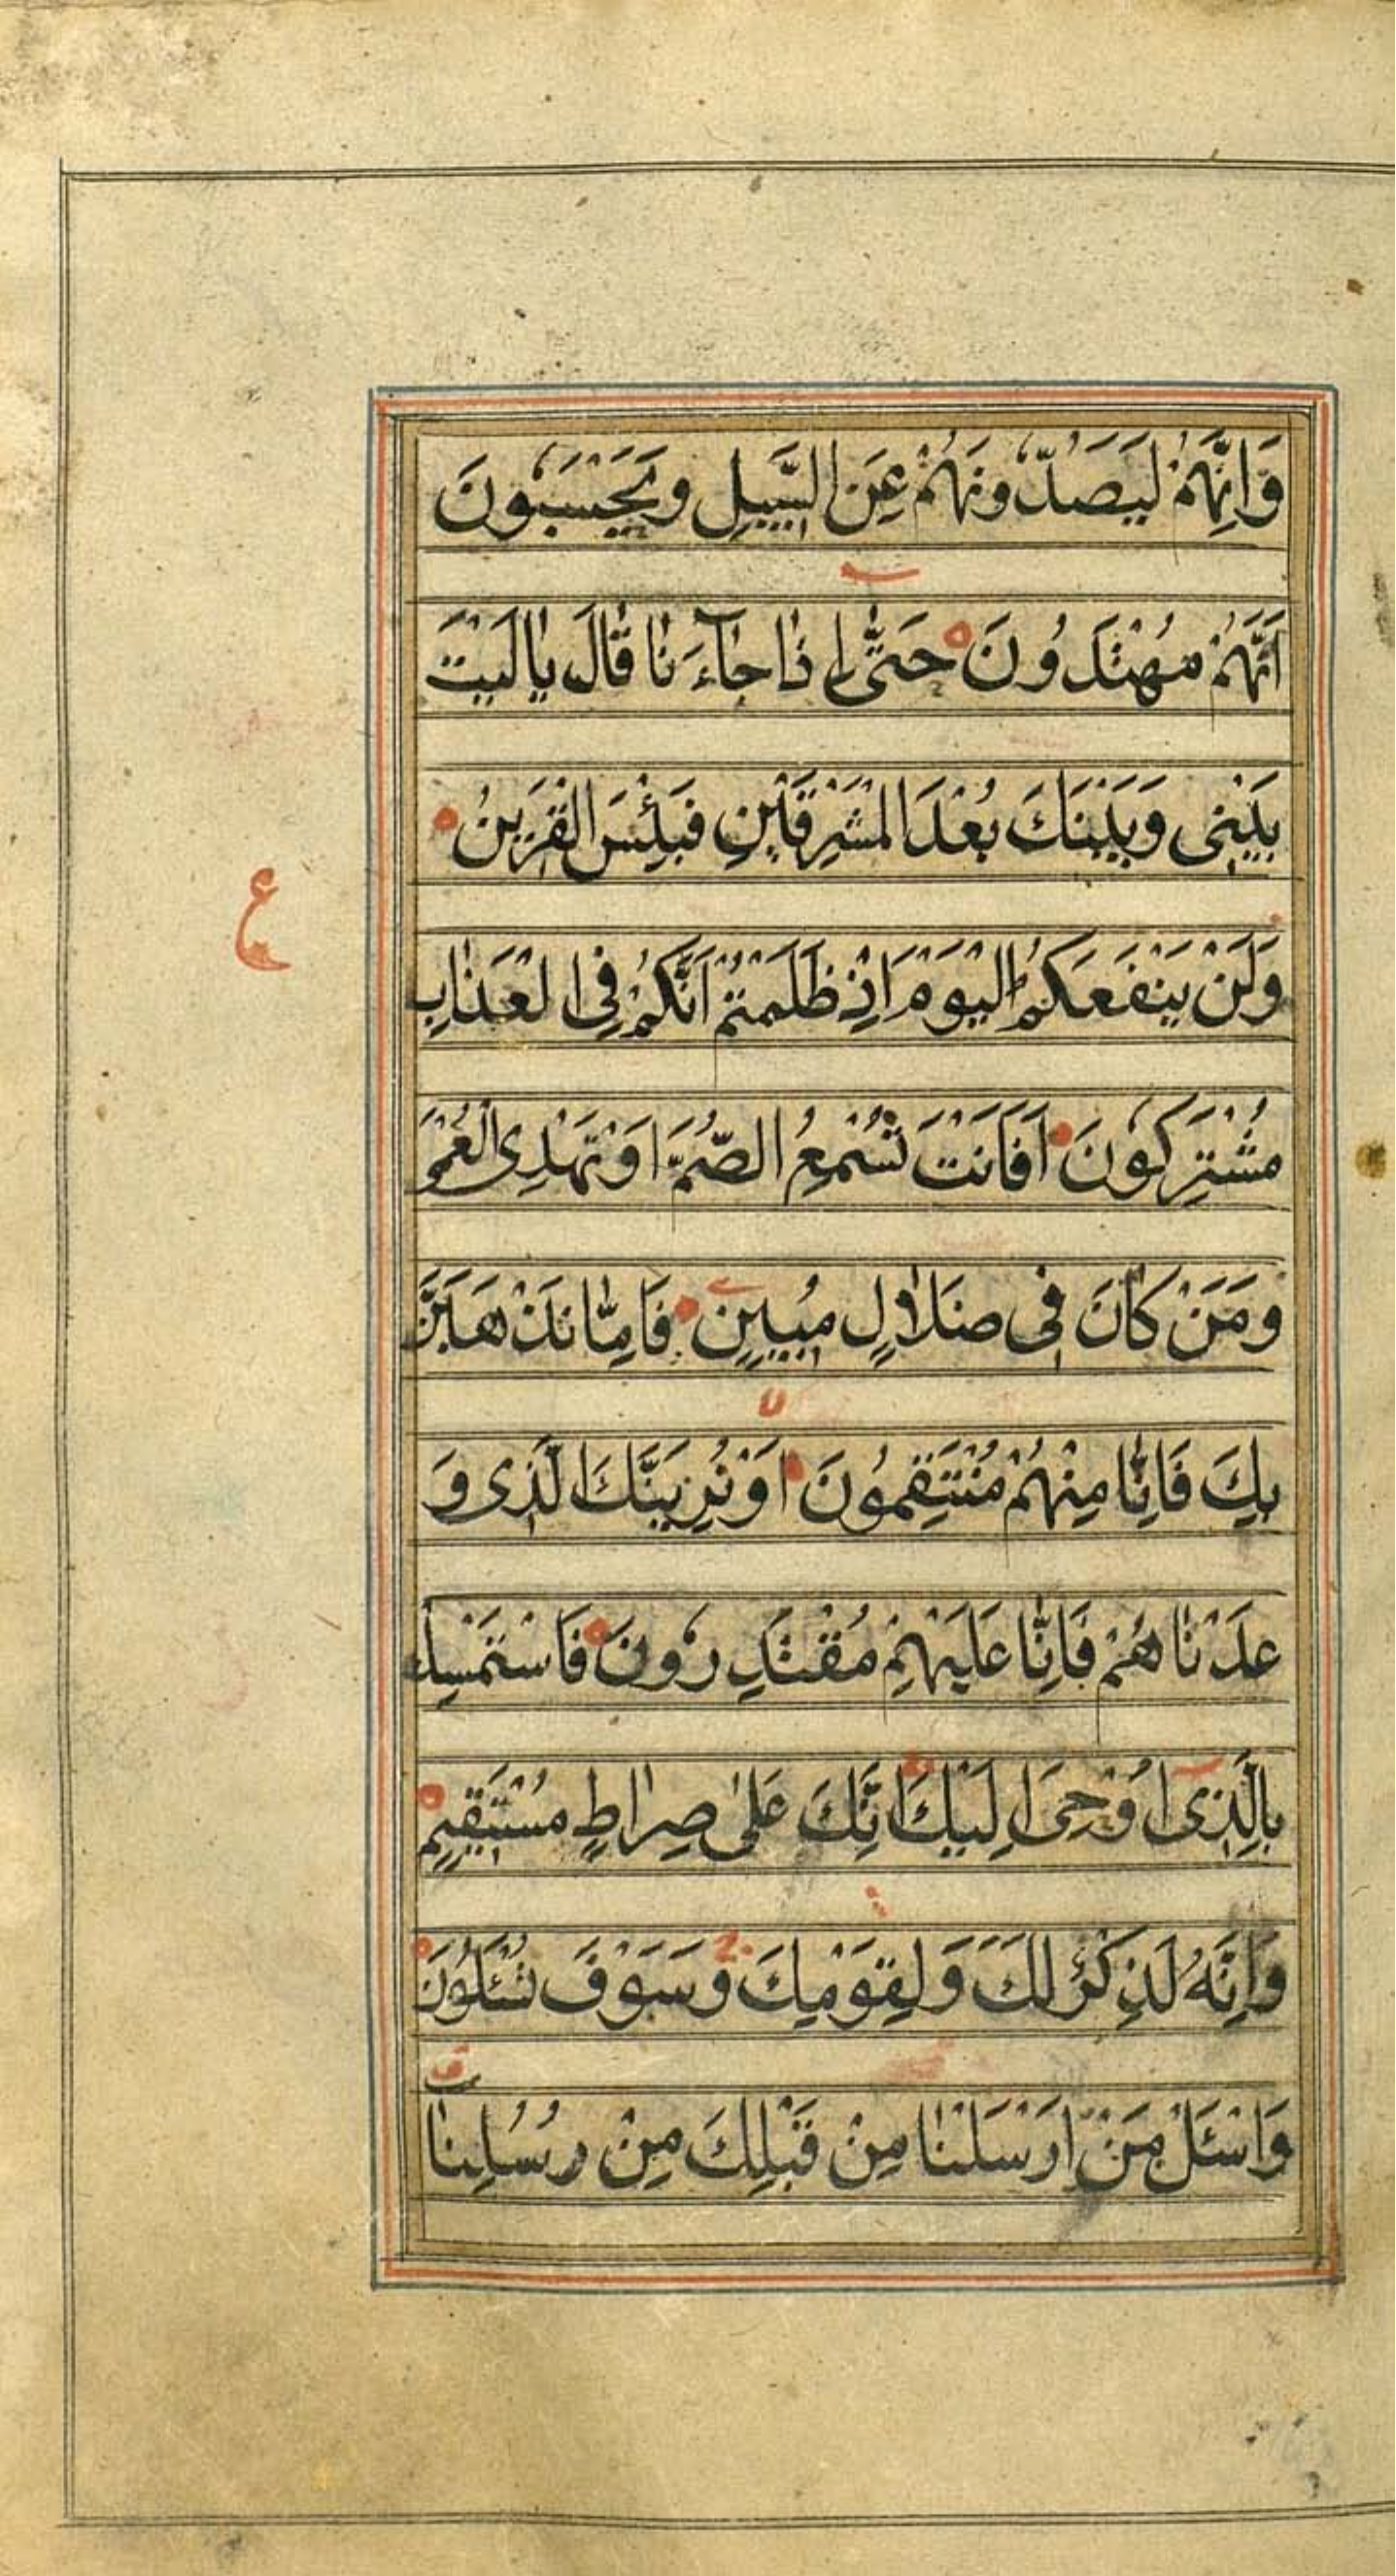 وَاِنَّهُمْ لَيَصُدُّونَهُمْ عَنِ السَّبِيلِ وَيَحْسَبُونَ
اَنَّهُمْ مُهْتَدُونَ حَتّٰى اِذٰا جٰاۤءَنٰا قٰالَ يٰا لَيْتَ
بَيْنِى وَبَيْنَكَ بُعْدَ الْمَشْرِقَيْنِ فَبِئْسَ الْقَرِينُ
ع
وَلَنْ يَنْفَعَكُمُ الْيَوْمَ اِذْ ظَلَمْتُمْ اَنَّكُمْ فِى الْعَذٰابِ
مُشْتَرِكُونَ اَفَاَنْتَ تُسْمِعُ الصُّمَّ اَوْ تَهْدِى الْعُمْىَ
وَمَنْ كٰانَ فِى ضَلاٰلٍ مُبِينٍ فَاِمّٰا نَذْهَبَنَّ
بِكَ فَاِنّٰا مِنْهُمْ مُنْتَقِمُونَ اَوْ نُرِيَنَّكَ الَّذِى وَ
عَدْنٰاهُمْ فَاِنّٰا عَلَيْهِمْ مُقْتَدِرُونَ فَاسْتَمْسِكْ
بِالَّذِى اُوحِىَ اِلَيْكَ اِنَّكَ عَلىٰ صِرٰاطٍ مُسْتَقِيمٍ
وَاِنَّهُ لَذِكْرٌ لَكَ وَلِقَوْمِكَ وَسَوْفَ تُسْئَلُونَ
وَاسْئَلْ مَنْ اَرْسَلْنٰا مِنْ قَبْلِكَ مِنْ رُسُلِنٰا